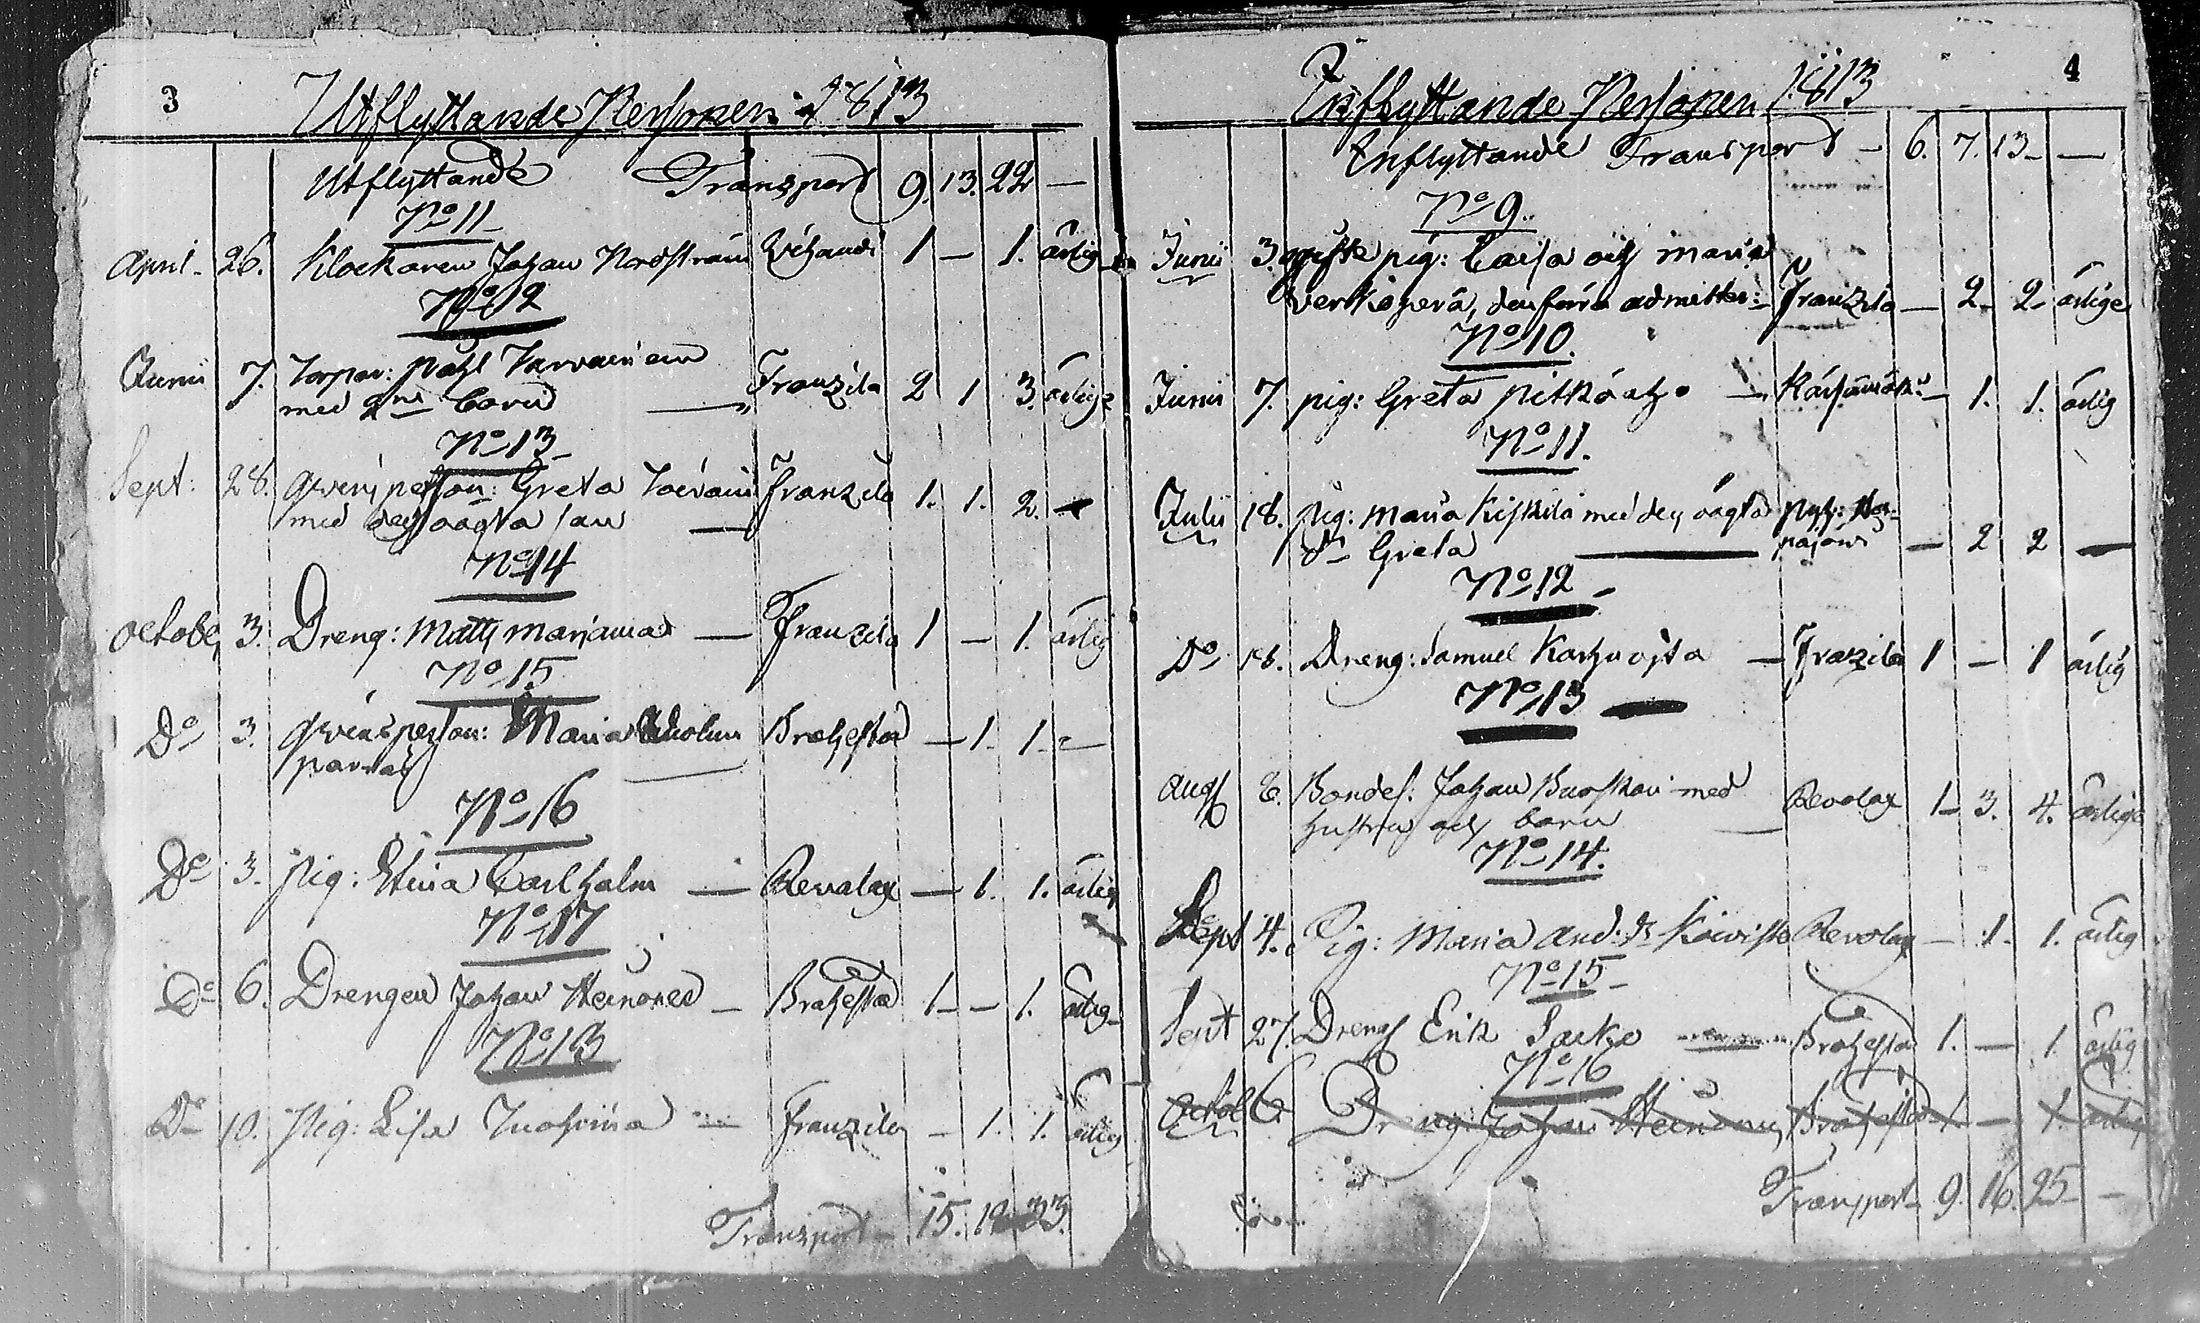 3
Utflyttande Personer 1813
Utflyttande Transport 9. 13. 22 —
No 11
April 26. Klockaren Johan Nordström 1 — 1. ärlig
No 12
Junii 7. Torpar: Påhl
med 2ne barn — Franzila 2 1 3. ärlige
No 13
Sept: 28. Qvinsperson: Greta Franzila 1. 1. 2. —
med dess oägta son —
No 14
October 3. Dreng: Matts Marjamaa — Franzila 1 — 1. ärlig
No 15
Do 3. Qvinsperson: Maria Brahestad — 1. 1. —
No 16
Do 3. Pig: Stina Carlholm — Revolax — 1. 1. ärlig
No 17
Do 6. Drengen Johan Heinonen — Brahestad 1 — 1. ärlig
No 18
Do 10. Pig: Lisa — Franzila — 1. 1. ärlig
Transport — 15. 18 33.
4
Inflyttande Personer 1813
Inflyttande Transport — 6. 7. 13 — —
No 9.
Junii 3. pig: Caisa och Maria
den förra admitter: Franzila — 2 — 2 ärlige
No 10.
Junii 7. pig: Greta Pitkäaho — Kärsämäki — 1. 1. ärlig
No 11.
Julii 18. Pig: Maria Kiskilä med dess oägta
dr Greta — — 2 2 —
No 12
Do 18. Dreng: Samuel Karhuoja — Franzila 1 — 1 ärlig
No 13
Aug 8. Bondes: Johan Buoskari med Revolax 1 — 3. 4. ärlige
hustru och barn —
No 14.
Sept 4. Pig: Maria And: dr Koivisto Revolax — 1. 1. ärlig
No 15
Sept 27. Dreng Erik Sarko Brahestad 1. — 1. ärlig
No 16
Octob 6 Dreng Johan Heinonen Brahestad 1 — 1. ärlig
Transport 9. 16. 25 —